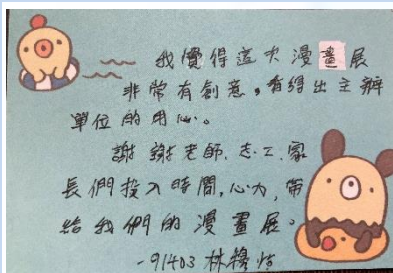 我覺得這次漫畫展
非常有創意。看得出主辦
單位的用心。
謝謝老師、志工、家
長們投入時間,心力,帶
給我們的漫畫展。
-91403 林